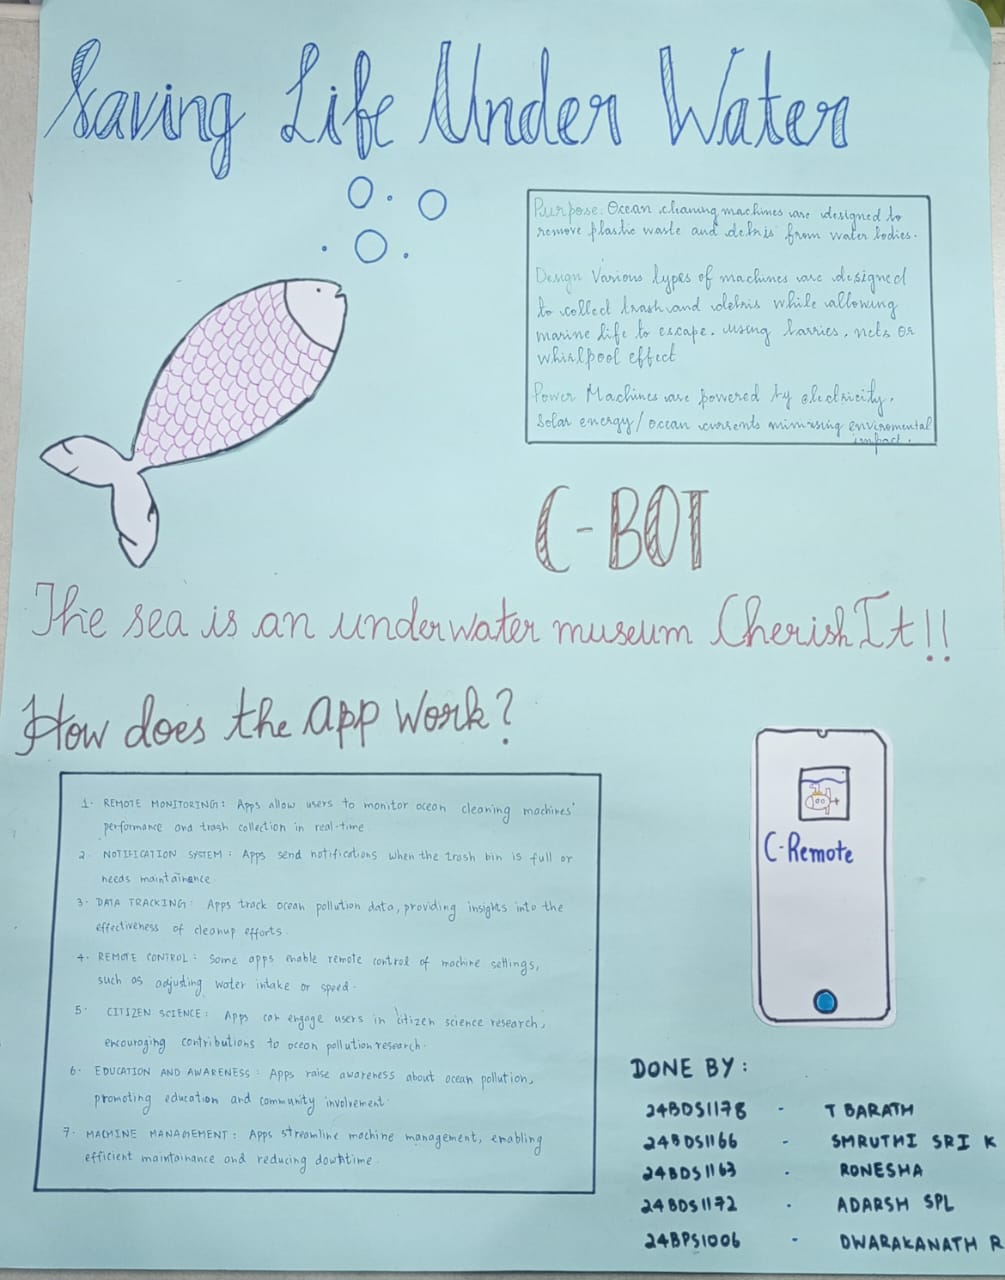 Saving Life Under Water
Purpose: Ocean cleaning machines are designed to
remove plastic waste and debris from water bodies.
Design Various types of machines are designed
to collect trash and debris while allowing
marine life to escape. using barries, nets or
whirlpool effect
Power Machines are powered by electricity,
Solar energy/ocean currents minimising enviromental
impact.
C-BOT
The sea is an underwater museum Cherish It!!
How does the app work?
1. REMOTE MONITORING: Apps allow users to monitor ocean cleaning machines'
performance and trash collection in real-time
2. NOTIFICATION SYSTEM: Apps send notifications when the trash bin is full or
needs maintainance
3. DATA TRACKING: Apps track ocean pollution data, providing insights into the
effectiveness of cleanup efforts.
4. REMOTE CONTROL: Some apps enable remote control of machine settings,
such as adjusting water intake or speed.
5. CITIZEN SCIENCE: Apps can engage users in citizen science research,
encouraging contributions to ocean pollution research.
6. EDUCATION AND AWARENESS: Apps raise awareness about ocean pollution,
promoting education and community involvement.
7. MACHINE MANAGEMENT: Apps streamline machine management, enabling
efficient maintainance and reducing downtime.
C-Remote
DONE BY:
24BDS1178 - T BARATH
24BDS1166 - SMRUTHI SRI K
24BDS1163 - RONESHA
24BDS1172 - ADARSH SPL
24BPS1006 - DWARAKANATH R